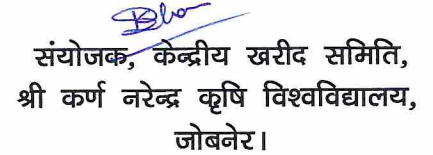 संयोजक, केन्द्रीय खरीद समिति,
श्री कर्ण नरेन्द्र कृषि विश्वविद्यालय,
जोबनेर।